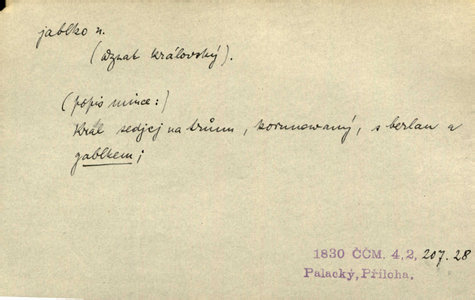 jablko n.
(odznak královský).
(popis mince:)
Král sedjcj na trůnu, korunowaný, s berlau a
gablkem;
1830 ČČM. 4, 2, 207. 28
Palacký, Příloha.